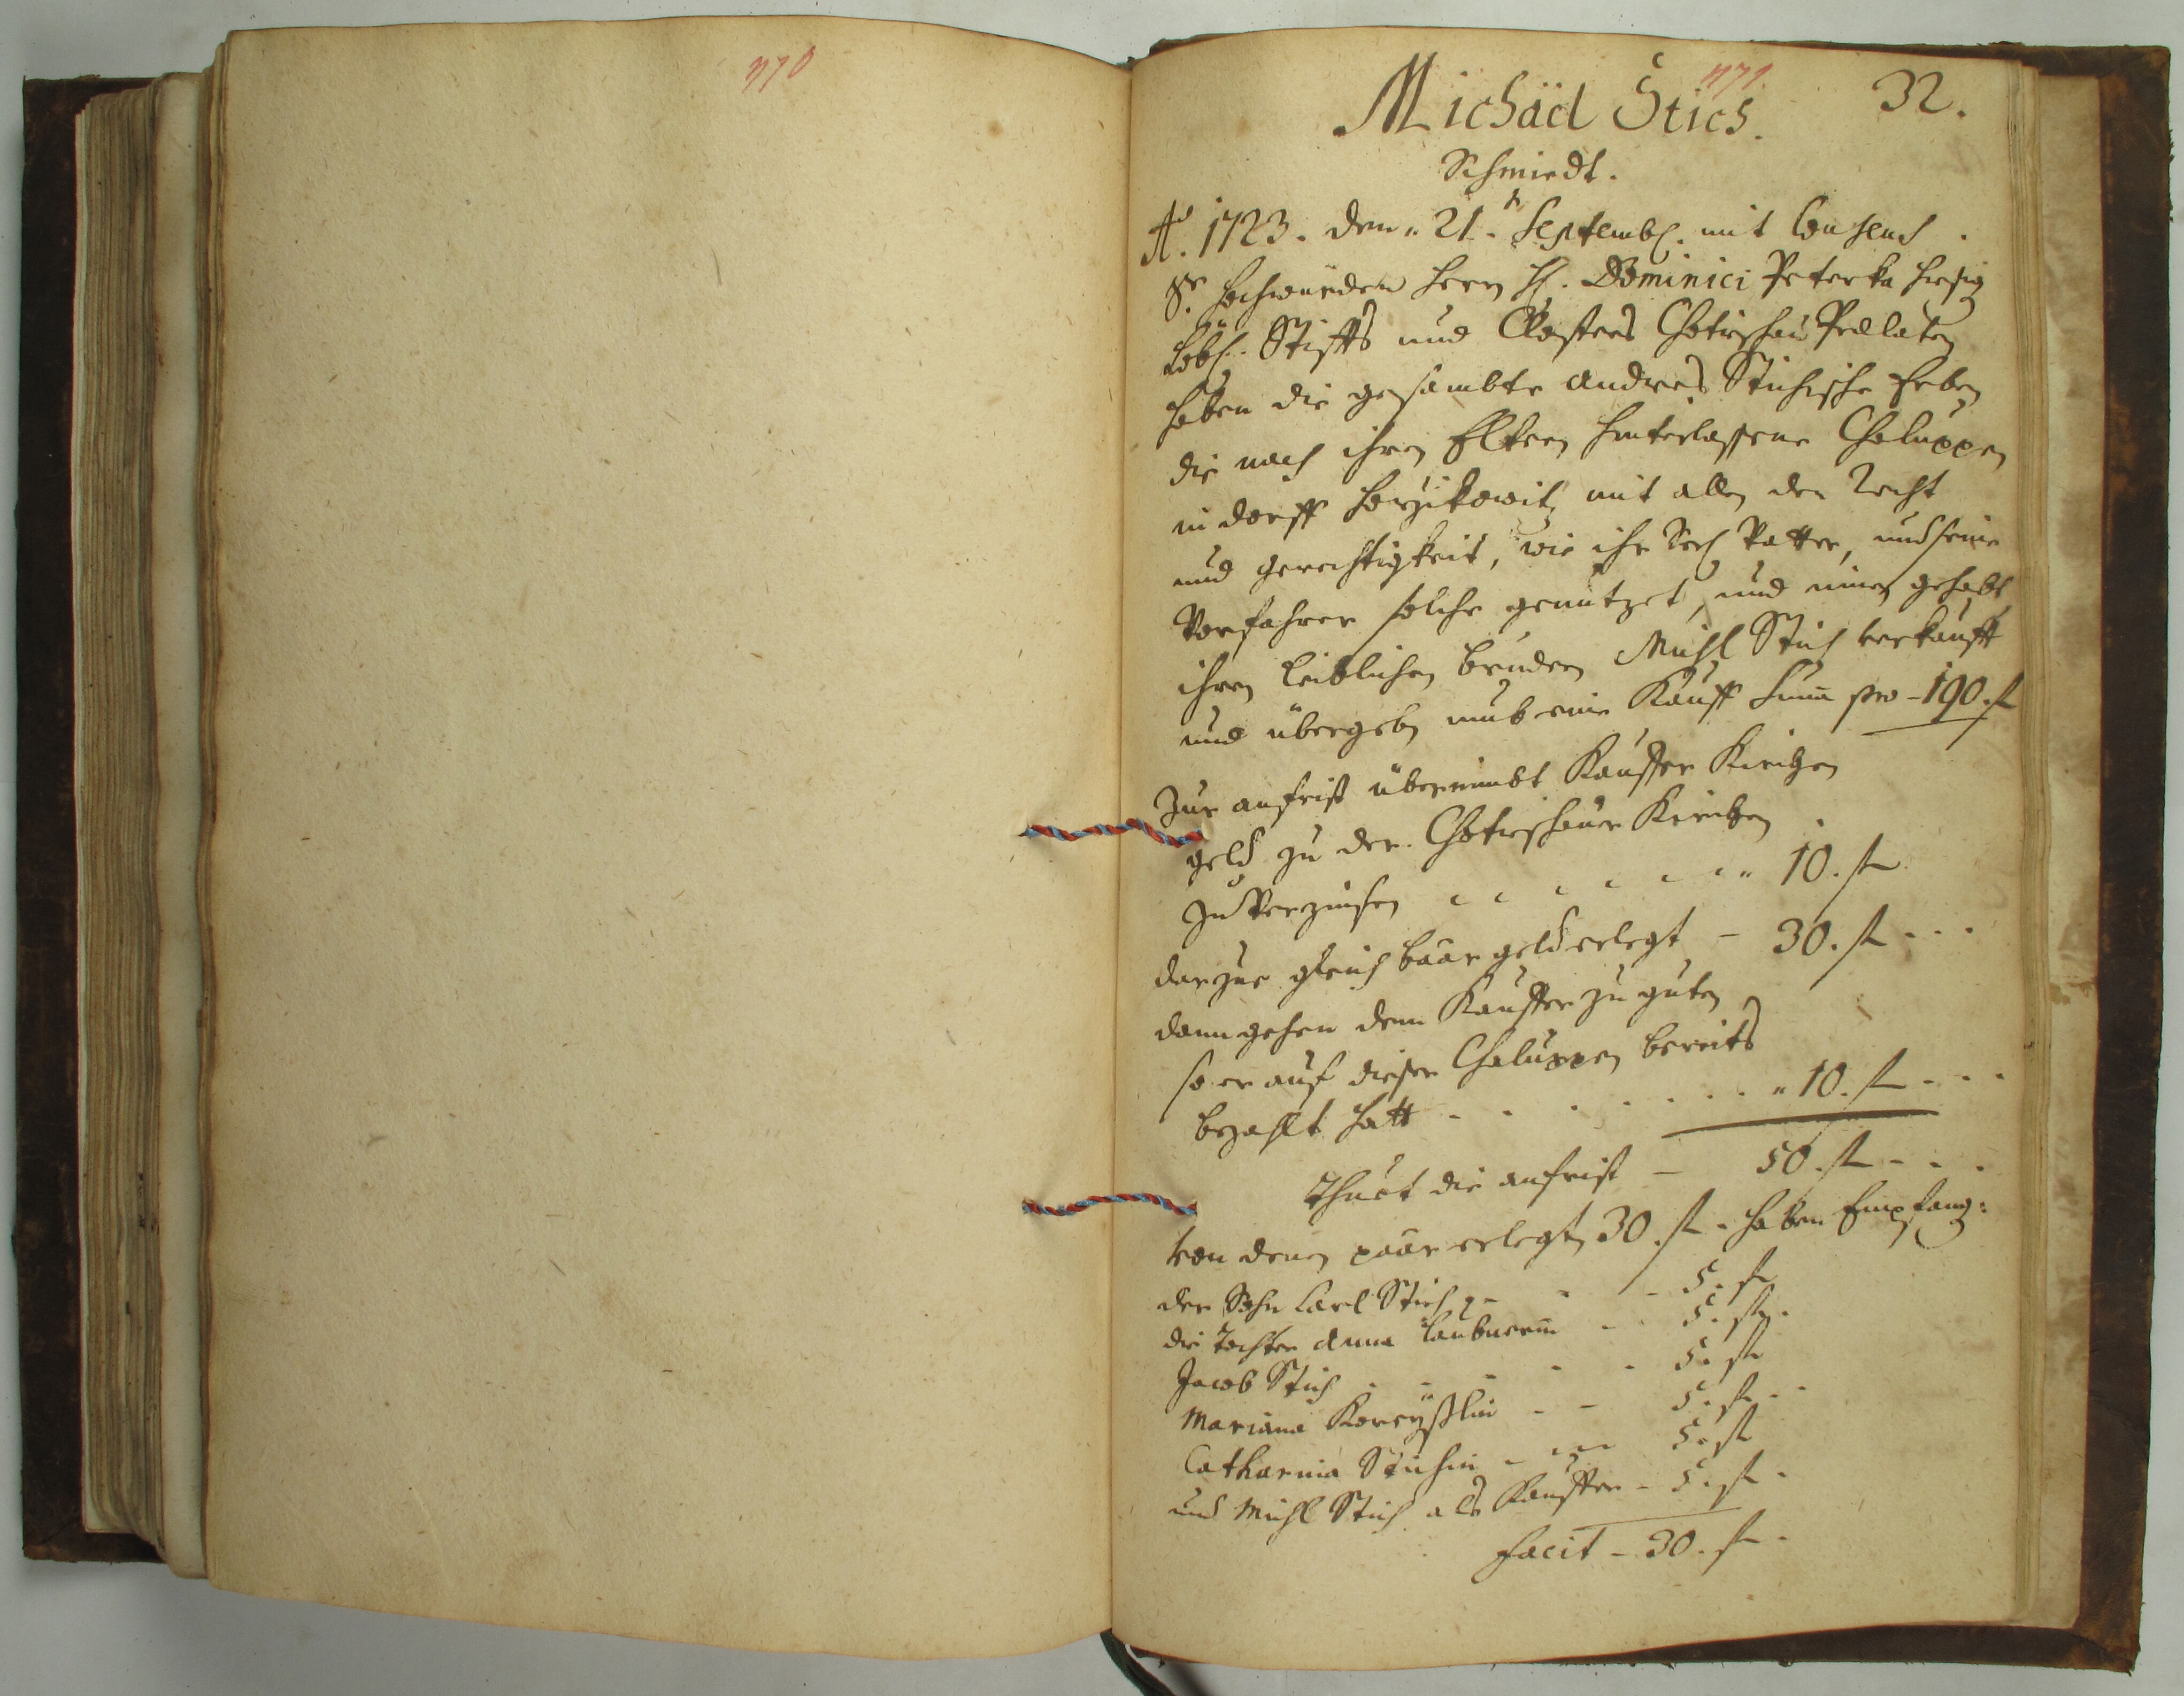 770
771.
Michäel Stich. 32.
Schmiedt.
Aõ. 1723. den 21.t Septembr. mit Consens
Sr. Hochwürden Herrn H. Dominici Peterka hiesig
Löbl. Stiffts und Closters Chotieschau Prælaten
haben die gesambte Andreas Stichische Erben
die nach ihren Eltern hinterlassene Chaluppen
in dorff Horzikowitz mit allen der Recht
und gerechtigkeit, wie ihr Seel Vatter, und seine
Vorfahrer solche genutzet, und innen gehabt
ihren leiblichen bruder Michl Stich verkaufft
und übergeben umb eine Kauff Suma pro - 190. f
Zur anfrist übernimbt Kauffer Kirchen
geld zu der Chotieschauer Kirchen
zu Verzinsen 10. f
darzue gleich baar geld erlegt - 30. f
dann gehen dem Kauffer zu guten
so er auf dieser Chaluppen bereits
bezahlt hatt 10. f
Thuet die anfrist - 50. f
Von denen paar erlegten 30. f. haben Empfang:
der Sohn Carl Stich - 5. f
die Tochter Anna Taubnerin - 5. f.
Jacob Stich - 5. f
Mariana - - 5. f
Catharina Stichin 5. f
und Michl Stich als Kauffer - 5. f.
facit - 30. f.